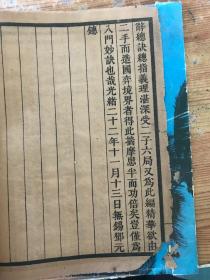 辭總訣總指義理湛深受二子六局又為此編精華欲由
二手而造國弈境界者得此揣摩思半而功倍矣豈僅為
入門妙訣也哉光緒二十二年十一月十三日無錫鄧元
鏸